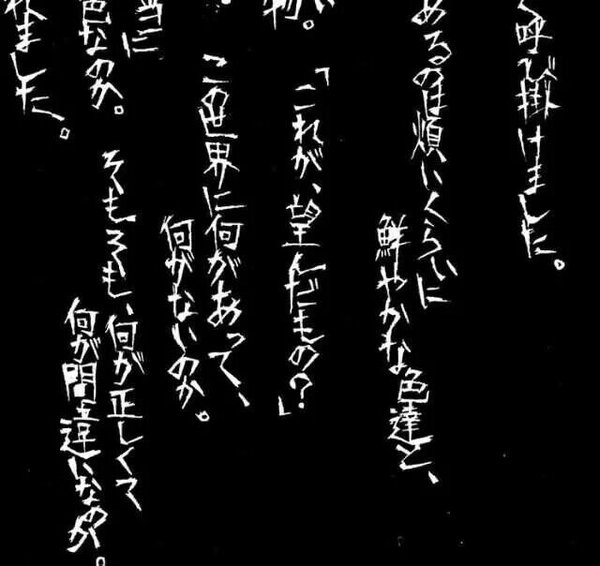 く呼び掛けました。
あるのは煩いくらいに
鮮やかな色達と、
い物。
「これが、望んだもの？」
この世界に何があって、
何がないのか。
そもそも、何が正しくて
何が間違いなのか。
当に
色なのか。
れました。